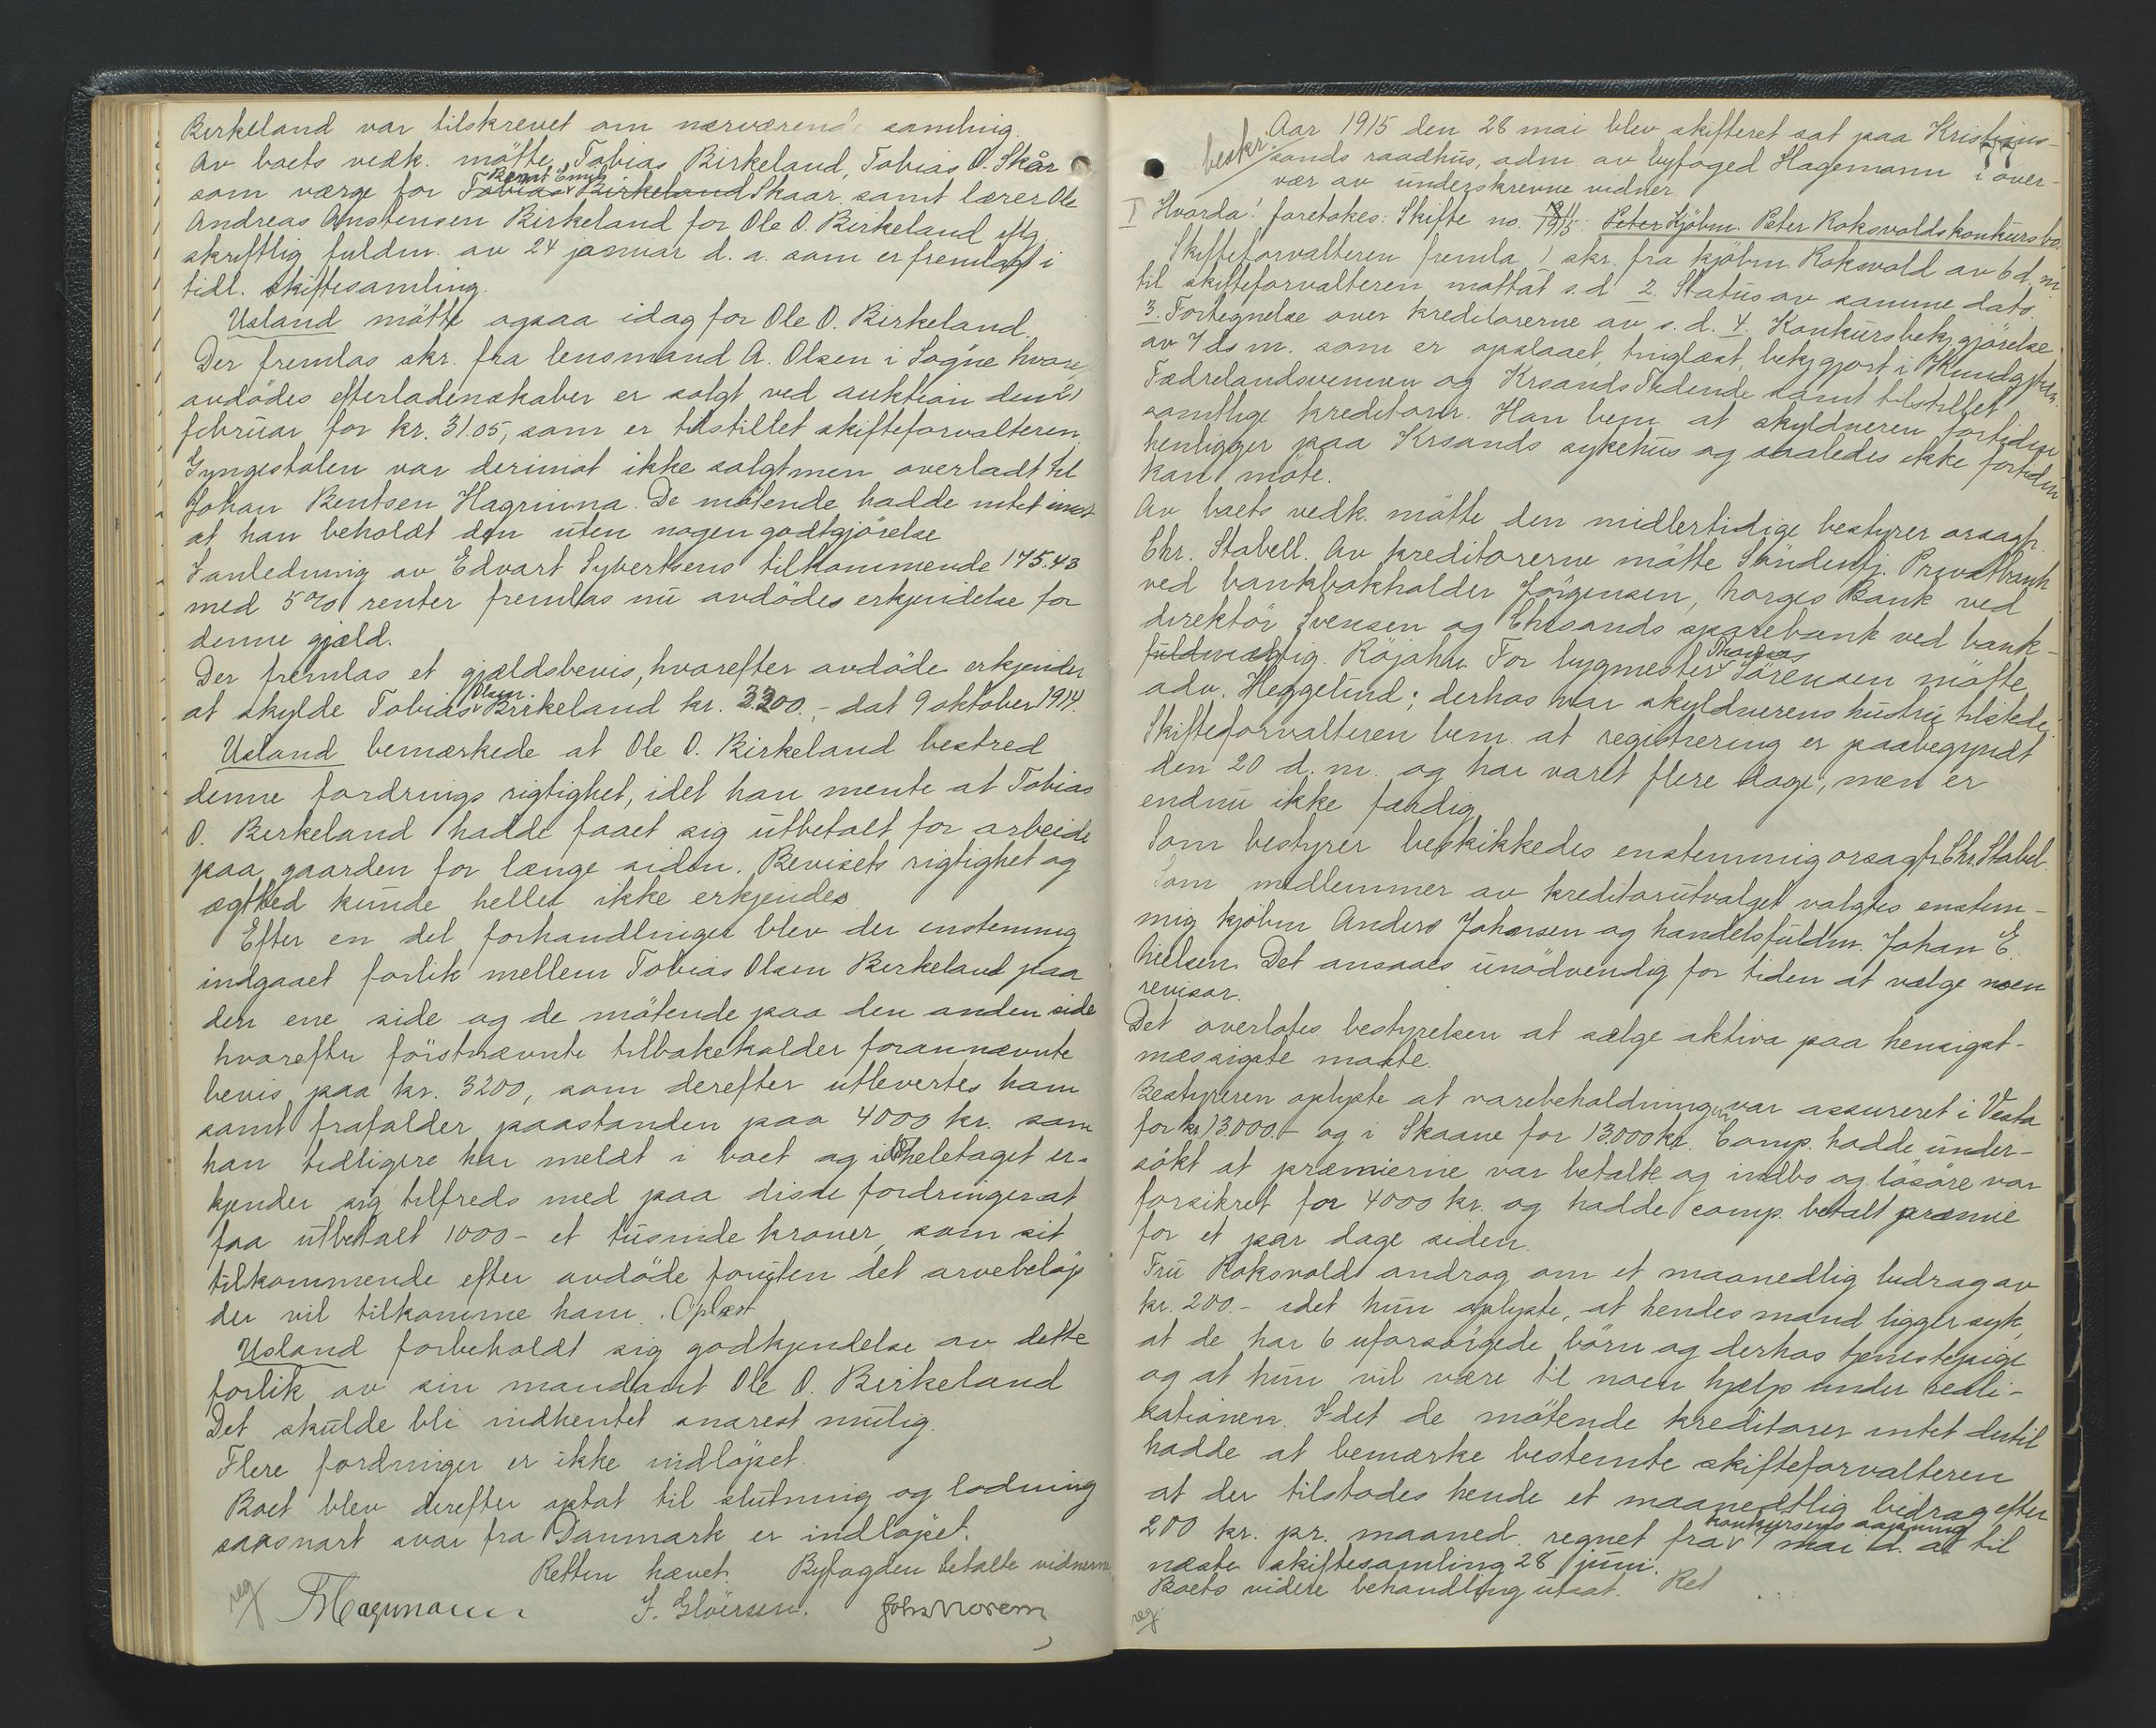 Birkeland var tilskrevet om nærværende samling.
Av boets vedk. mötte Tobias Birkeland, Tobias O. Skår
Bernt Emil
som værge for Tobias Birkeland Skaar. samt lærer Ole
Andreas Anstensen Birkeland for Ole O. Birkeland eftg
skriftlig fuldm. av 24 januar d. a. som er fremlagt i
tidl. skiftesamling.
Usland mötte ogsaa idag for Ole O. Birkeland.
Der fremlas skr. fra lensmand A. Olsen i Sogne hvor
avdödes efterladenskaber er solgt ved auktion den 21
februar for kr. 31.05, som er tilstillet skifteforvalteren.
Gyngestolen var derimot ikke solgt men overladt til
Johan Bentsen Hagrinna. De mötende hadde intet imot
at han beholdt den uten nogen godtgjörelse
I anledning av Edvart Syvertsens tilkommende 175.43
med 5% renter fremlas nu avdödes erkjendelse for
denne gjæld.
Der fremlas et gjældsbevis, hvorefter avdöde erkjender
Olsen
at skylde Tobias Birkeland kr. 3200.- dat 9 oktober 1914.
Usland bemærkede at Ole O. Birkeland bestred
denne fordrings rigtighet, idet han mente at Tobias
O. Birkeland hadde faaet sig utbetalt for arbeide
paa gaarden for længe siden. Bevisets rigtighet og
ægthed kunde heller ikke erkjendes
Efter en del forhandlinger blev der enstemmig
indgaaet forlik mellem Tobias Olsen Birkeland paa
den ene side og de mötende paa den anden side
hvorefter förstnævnte tilbakekalder forannævnte
bevis paa kr. 3200, som derefter utlevertes ham
samt frafalder paastanden paa 4000 kr. som
han tidligere har meldt i boet og i det heletaget er-
kjender sig tilfreds med paa disse fordringer at
faa utbetalt 1000 - et tusinde kroner, som sit
tilkommende efter avdöde foruten det arvebelöp
der vil tilkomme ham. Oplæst
Usland forbeholdt sig godkjendelse av dette
forlik av sin mandant Ole O. Birkeland
Det skulde bli indhentet snarest mulig.
Flere fordringer er ikke indlöpet.
Boet blev derefter optat til slutning og lodning
saasnart svar fra Danmark er indlöpet.
Retten hævet. Byfogden betalte vidnerne
reg
Hagemann J. Glöersen. John Norem
77
beskr. Aar 1915 den 28 mai blev skifteret sat paa Kristjans-
sands raadhus, adm. av byfoged Hagemann i over-
vær av underskrevne vidner.
I Hvorda! foretokes: Skifte no. /1915: Peter Kjöbm. Peter Roksvolds konkursbo.
Skifteforvalteren fremla 1 skr. fra kjöbm. Roksvold av 6 d. m.
til skifteforvalteren mottat s. d 2. Status av samme dato.
3. Fortegnelse over kreditorerne av s. d. 4. Konkursbekjgjörelse
av 7 ds m. som er opslaaet, tinglæst, bekjgjort i Kundgj.
Fædrelandsvennen og Krsands Tidende samt tilstillet
samtlige kreditorer. Han bem. at skyldneren fortiden
henligger paa Krsands sykehus og saaledes ikke fortiden
kan möte.
Av boets vedk. mötte den midlertidige bestyrer orsagf.
Chr. Stabell. Av kreditorerne mötte Söndenfj. Privatbank
ved bankbokholder Jörgensen, Norges Bank ved
direktör Svensen og Chrsands sparebank ved bank-
fuldmægtig. Röjahn. For bygmester Thomas Sörensen mötte
adv. Heggelund; derhos var skyldnerens hustru tilstede.
Skifteforvalteren bem. at registrering er paabegyndt
den 20 d. m. og har varet flere dage, men er
endnu ikke færdig
Som bestyrer beskikkedes enstemmig orsagf. Chr. Stabel.
Som medlemmer av kreditorutvalget valgtes enstem-
mig kjöbm Anders Johansen og handelsfuldm. Johan E.
Nielsen. Det ansaaes unödvendig for tiden at vælge noen
revisor.
Det overlotes bestyrelsen at sælge aktiva paa hensigst-
mæssigste maate.
Bestyreren oplyste at varebeholdningen var assureret i Vesta
for kr 13.000.- og i Skaane for 13.000 kr. Comp. hadde under-
sökt at præmierne var betalt og indbo og lösöre var
forsikret for 4000 kr. og hadde comp. betalt præmie
for et par dage siden.
Fru Roksvold androg om et maanedlig bidrag av
kr. 200.- idet hun oplyste, at hendes mand ligger syk,
at de har 6 uforsörgede börn og derhos tjenestepige
og at hun vil være til noen hjælp under reali-
sationen. Idet de mötende kreditorer intet dertil
hadde at bemærke bestemte skifteforvalteren
at der tilstodes hende et maanedtlig bidrag efter
konkursens aapning
200 kr. pr. maaned. regnet fra mai d. a. til
næste skiftesamling 28 juni.
Boets videre behandling utsat. Ret
reg